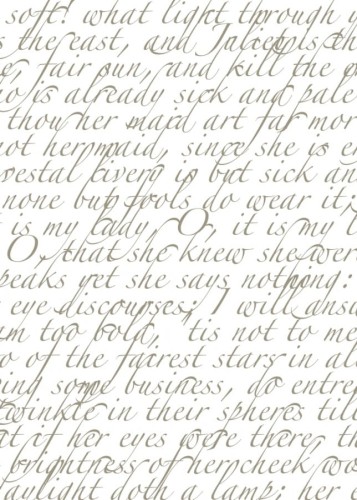 soft! what light through
s the east, and Juliet is th
e, fair sun, and kill the
o is already sick and pale
thou her maid art far mor
not her maid, since she is e
vestal livery is but sick an
none but fools do wear it;
t is my lady, O, it is my l
O, that she knew she were
peaks yet she says nothing:
eye discourses; I will ans
m too bold, 'tis not to me
o of the fairest stars in al
ing some business, do entre
twinkle in their spheres til
t if her eyes were there, th
brightness of her cheek wou
daylight doth a lamp; her